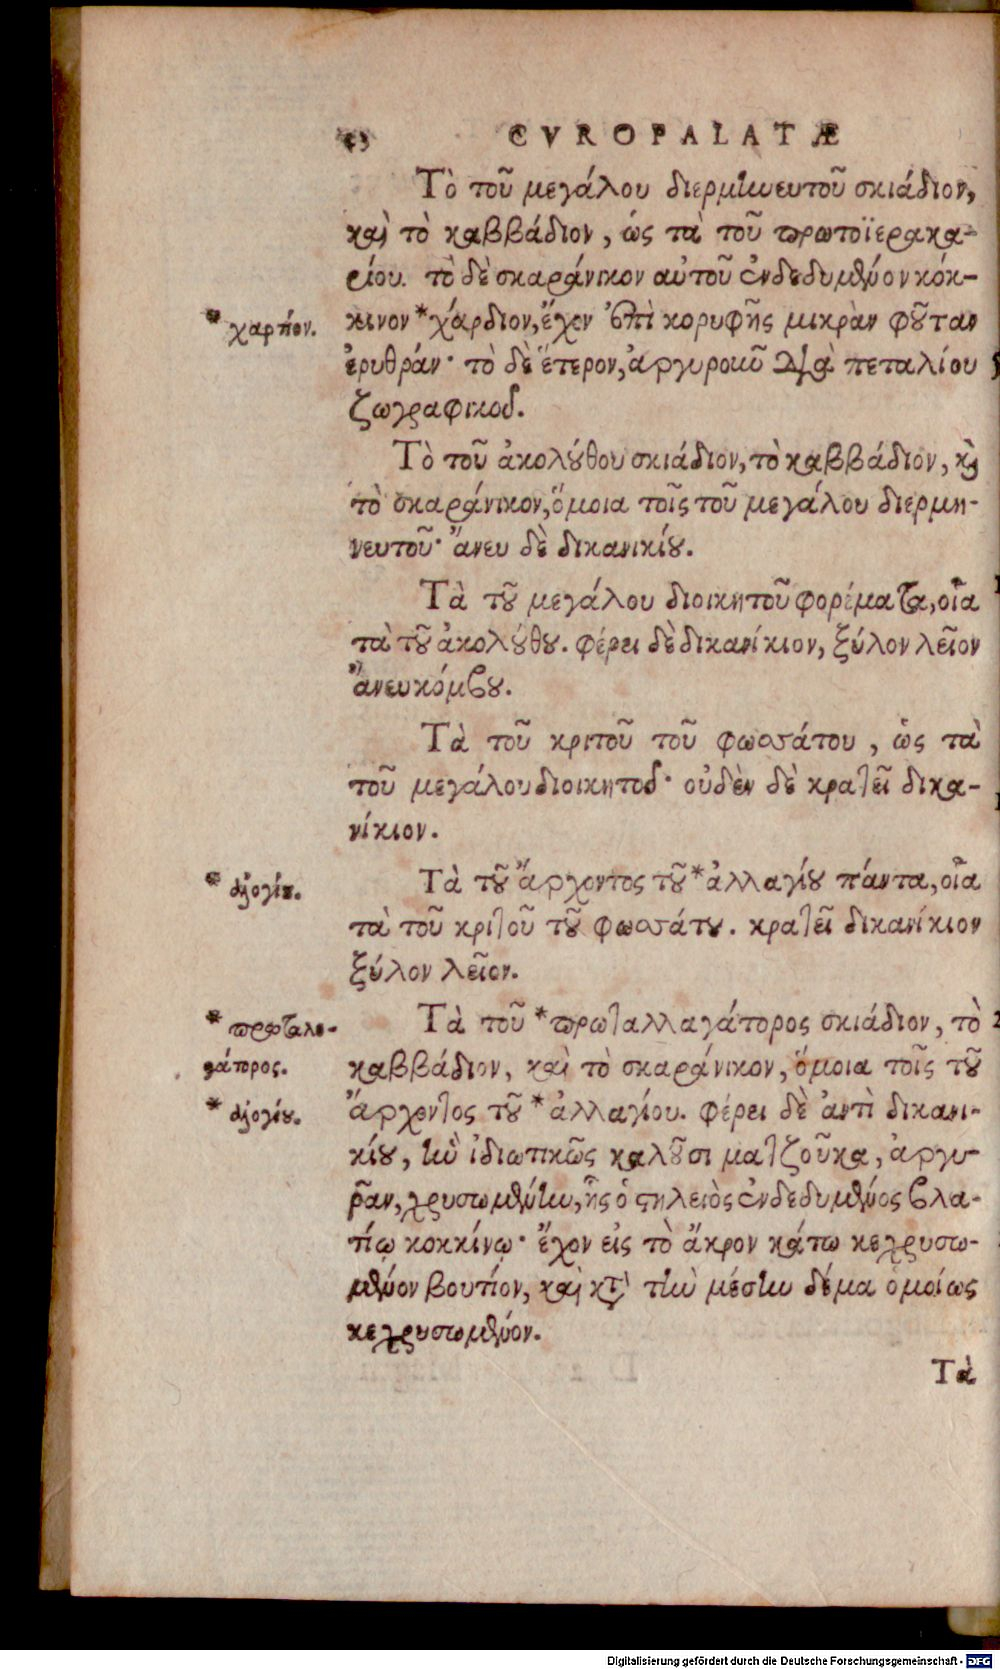 CVROPALATÆ
Τὸ τοῦ μεγάλου διερμηνευτοῦ σκιάδιον,
καὶ τὸ καββάδιον, ὡς τὰ τοῦ πρωτοϊερακα-
ρίου. τὸ δὲ σκαράνικον αὐτοῦ ἐνδεδυμένον κόκ-
* χαρπίον.
κινον * χάρδιον, ἔχον ἐπὶ κορυφῆς μικρὰν φοῦταν
ἐρυθράν· τὸ δὲ ἕτερον, ἀργυροκοῦ διὰ πεταλίου
ζωγραφικοῦ.
Τὸ τοῦ ἀκολούθου σκιάδιον, τὸ καββάδιον, καὶ
τὸ σκαράνικον, ὅμοια τοῖς τοῦ μεγάλου διερμη-
νευτοῦ· ἄνευ δὲ δικανικίου.
Τὰ τοῦ μεγάλου διοικητοῦ φορέματα, οἷα
τὰ τοῦ ἀκολούθου. φέρει δὲ δικανίκιον, ξύλον λεῖον
ἄνευ κόμβου.
Τὰ τοῦ κριτοῦ τοῦ φωσσάτου, ὡς τὰ
τοῦ μεγάλου διοικητοῦ· οὐδὲν δὲ κρατεῖ δικα-
νίκιον.
Τὰ τοῦ ἄρχοντος τοῦ * ἀλλαγίου πάντα, οἷα
τὰ τοῦ κριτοῦ τοῦ φωσσάτου. κρατεῖ δικανίκιον
ξύλον λεῖον.
Τὰ τοῦ * πρωταλλαγάτορος σκιάδιον, τὸ
καββάδιον, καὶ τὸ σκαράνικον, ὅμοια τοῖς τοῦ
ἄρχοντος τοῦ * ἀλλαγίου. φέρει δὲ ἀντὶ δικανι-
κίου, ἣν ἰδιωτικῶς καλοῦσι ματζοῦκα, ἀργυ-
ρᾶν, χρυσωμένην, ἧς ὁ στηλειὸς ἐνδεδυμένος βλα-
τίῳ κοκκίνῳ· ἔχον εἰς τὸ ἄκρον κάτω κεχρυσω-
μένον βουτίον, καὶ κατὰ τὴν μέσην δέμα ὁμοίως
κεχρυσωμένον.
Τὰ
Digitalisierung gefördert durch die Deutsche Forschungsgemeinschaft - DFG